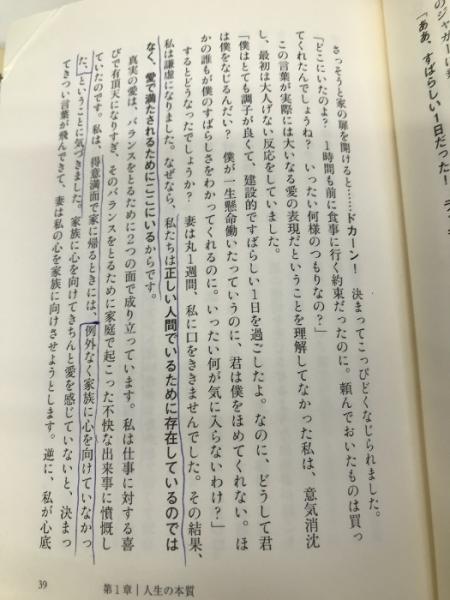 のジャガーに
「ああ、すばらしい1日だった！
さっそうと家の扉を開けると……ドカーン！　決まってこっぴどくなじられました。
「どこにいたのよ？　1時間も前に食事に行く約束だったのに。頼んでおいたものは買っ
てくれたんでしょうね？　いったい何様のつもりなの？」
この言葉が実際には大いなる愛の表現だということを理解してなかった私は、意気消沈
し、最初は大人げない反応をしていました。
「僕はとても調子が良くて、建設的ですばらしい1日を過ごしたよ。なのに、どうして君
は僕をなじるんだい？　僕が一生懸命働いたっていうのに、君は僕をほめてくれない。ほ
かの誰もが僕のすばらしさをわかってくれるのに。いったい何が気に入らないわけ？」
するとどうなったでしょうか？　妻は丸1週間、私に口をききませんでした。その結果、
私は謙虚になりました。なぜなら、私たちは正しい人間でいるために存在しているのでは
なく、愛で満たされるためにここにいるからです。
真実の愛は、バランスをとるために2つの面で成り立っています。私は仕事に対する喜
びで有頂天になりすぎ、そのバランスをとるために家庭で起こった不快な出来事に憤慨し
ていたのです。私は、得意満面で家に帰るときには、例外なく家族に心を向けていなかっ
た、ということに気づきました。家族に心を向けてきちんと愛を感じていないと、決まっ
てきつい言葉が飛んできて、妻は私の心を家族に向けさせようとします。逆に、私が心底
39　第1章｜人生の本質